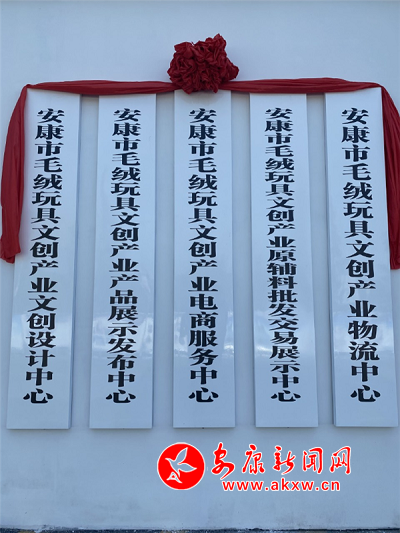 安康市毛绒玩具文创产业文创设计中心
安康市毛绒玩具文创产业产品展示发布中心
安康市毛绒玩具文创产业电商服务中心
安康市毛绒玩具文创产业原辅料批发交易展示中心
安康市毛绒玩具文创产业物流中心
安康新闻网
www.akxw.cn